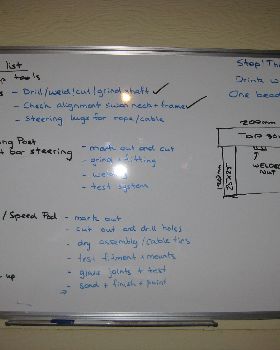 list
tools
- Drill/weld/cut/grind shaft ✓
- Check alignment swan neck + frame ✓
- Steering lugs for rope/cable
Post
bar steering - mark out and cut
- grind + fitting
- welding
- test system
/ Speed Pod - mark out
- cut out and drill holes
- dry assembly/cable ties
- test fitment + mounts
- glass joints + test
- sand + finish + paint
- up
Stop! Th
Drink w
One bead
200mm
TOP
200mm
25x25
WELDED
NUT